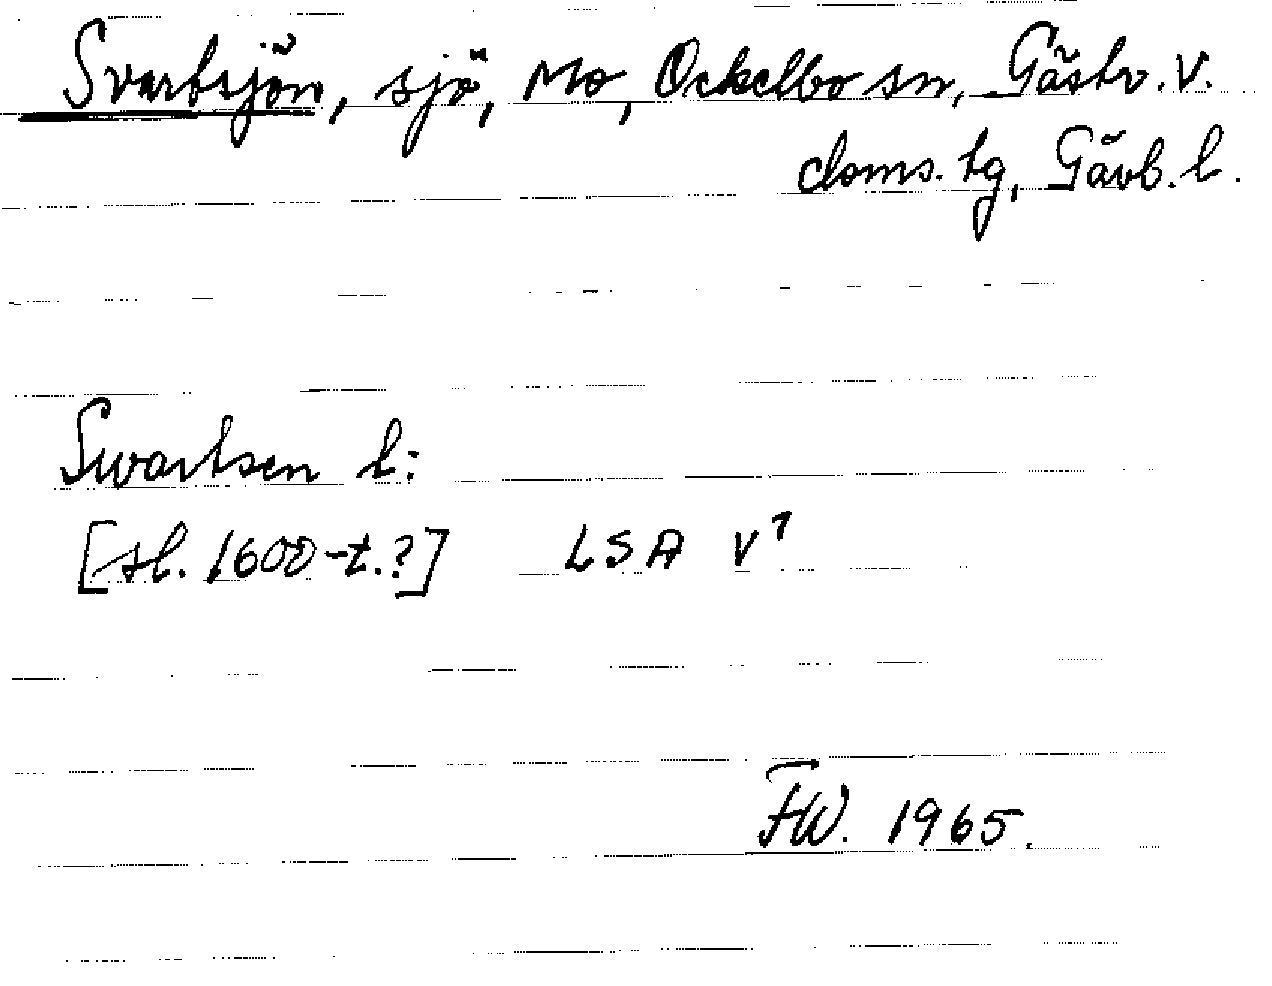 Svartsjön, sjö, Mo, Ockelbo sn, Gästr. V.
doms. tg, Gävb. l.
Swartsen l:
[sl. 1600-t.?] LSA V1
FW. 1965.